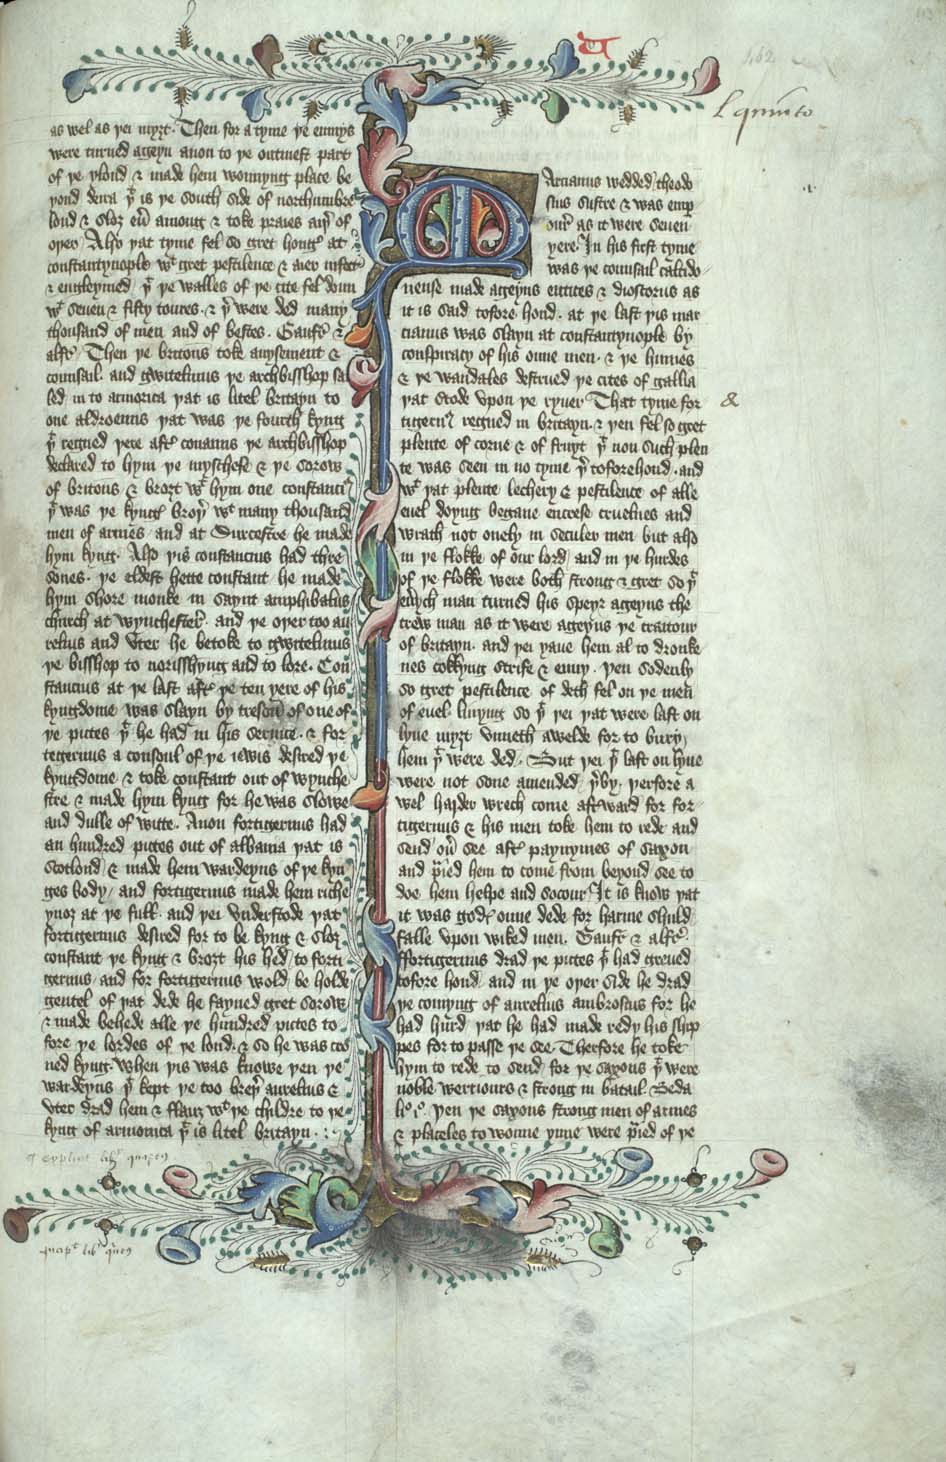 as wel as yei myȝt. Then for a tyme ye enmys
were turned ageyn anon to ye outmest part
of ye ylond & made hem wonnyng place be
yond deira yͭ is ye south side of northumbre
lond & sloȝ euͬ among & toke praies ayͬ of
oyer Also yat tyme fel so gret hongͬ at
constantynople wͭ gret pestilence & aier infect
& engleymed yͭ ye walles of ye cite fel doun
wͭ seuen & fifty toures. & yͬ were ded many
thousand of men and of bestes. Gaufͬ &
alfͬ. Then ye britons toke auysement &
counsail. and gwitelinus ye archbisshop sai
led in to armorica yat is litel britayn to
one aldroenus yat was ye fourth kyng
yͭ regned yere aftͬ conanus ye archbisshop
declared to hym ye myschefe & ye sorow
of britons & broȝt wͭ hym one constanti
yͭ was ye kyngͤ broyͬ wͭ many thousand
men of armes and at Surcestre he made
hym kyng. Also yis constancius had thre
sones. ye eldest hette constant he made
hym shore monke in saynt amphibalus
church at wynchestͬ. and ye oyer too au
relius and Vter he betoke to gwitelinus
ye bisshop to norisshyng and to lore. Con
stancius at ye last aftͬ ye ten yere of his
kyngdome was slayn by treson of one of
ye pictes yͭ he had in his seruice. & for
tegerius a consoul of ye iewis desired ye
kyngdome & toke constant out of wynche
stre & made hym kyng for he was slowe
and dulle of witte. Anon fortigerius had
an hundred pictes out of albania yat is
Scotlond & made hem wardeyns of ye kyn
ges body / and fortigerius made hem riche
ynoȝ at ye full. and yei Vnderstode yat
fortigerius desired for to be kyng & sloȝ
constant ye kyng & broȝt his hed to forti
gerius / and for fortigerius wold be holde
gentel of yat dede he fayned gret sorow
& made behede alle ye hundred pictes to
fore ye lordes of ye lond. & so he was cro
ned kyng. When yis was knowe yen ye
wardeyns yͭ kept ye too breyͬ aurelius &
Vter drad hem & flaiȝ wͭ ye childre to ye
kyng of armorica yͭ is litel britayn.
explicit libͬ quartͦ
incipͭ libͬ quͥntͦ
L quinto
Arcianus wedded theodo
sius sustre & was emp
ourͬ as it were seuen
yere. In his first tyme
was ye counsail calcido
nense made ageyns eutices & dioscorus as
it is said tofore hond. at ye last yis mar
cianus was slayn at constantynople by
conspiracy of his oune men. & ye hunes
& ye wandales destrued ye cites of gallia
yat stode Vpon ye ryuer That tyme for
tigeriͯ regned in britayn. & yen fel so gret
plente of corne & of fruyt yͭ non such plen
te was seen in no tyme yͬ toforehond. and
wͭ yat plente lechery & pestilence of alle
euel doyng began encrese cruelnes and
wrath not onely in seculer men but also
in ye flokke of our lord and in ye hirdes
of ye flokke were both strong & gret so yͭ
euͬych man turned his speyr ageyns the
trew man as it were ageyns ye traitour
of britayn. and yei yaue hem al to dronke
nes cokkyng strife & enuy. yen sodenly
so gret pestilence of deth fel on ye men
of euel liuyng so yͭ yei yat were laft on
lyue myȝt Vnneth awelde for to bury
hem yͭ were ded. But yei yͭ laft on lyue
were not sone amended yͬby. yerfore a
wel harder wrech come aftͬward for for
tigerius & his men toke hem to rede and
send ouͬ see aftͬ paynymes of saxon
and pͬied hem to come from beyond see to
doe hem helpe and socour It is know yat
it was godͤ oune dede for harme shuld
falle Vpon wiked men. Gaufͬ & alfͬ.
ffortigerius drad ye pictes yͭ had greued
tofore hond / and in ye oyer side he drad
ye comyng of aurelius ambrosius for he
had hurd yat he had made redy his ship
pes for to passe ye see. Therfore he toke
hym to rede to send for ye saxons yͭ were
noble werriours & strong in batail. Beda
liͦ .iͦ. yen ye saxons strong men of armes
& placeles to wonne ynne were pͬied of ye